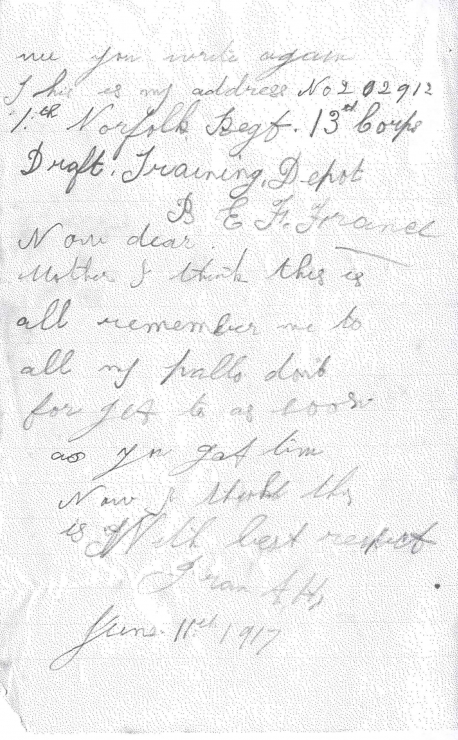 me you write again
This is my address No 202912
1.th Norfolk Regt. 13th Corps
Draft. Training. Depot
B E F. France
Now dear
Mother I think this is
all remember me to
all my palls dont
for get to as soon
as yu get tim
Now I think this
is With best respect
June 11th 1917